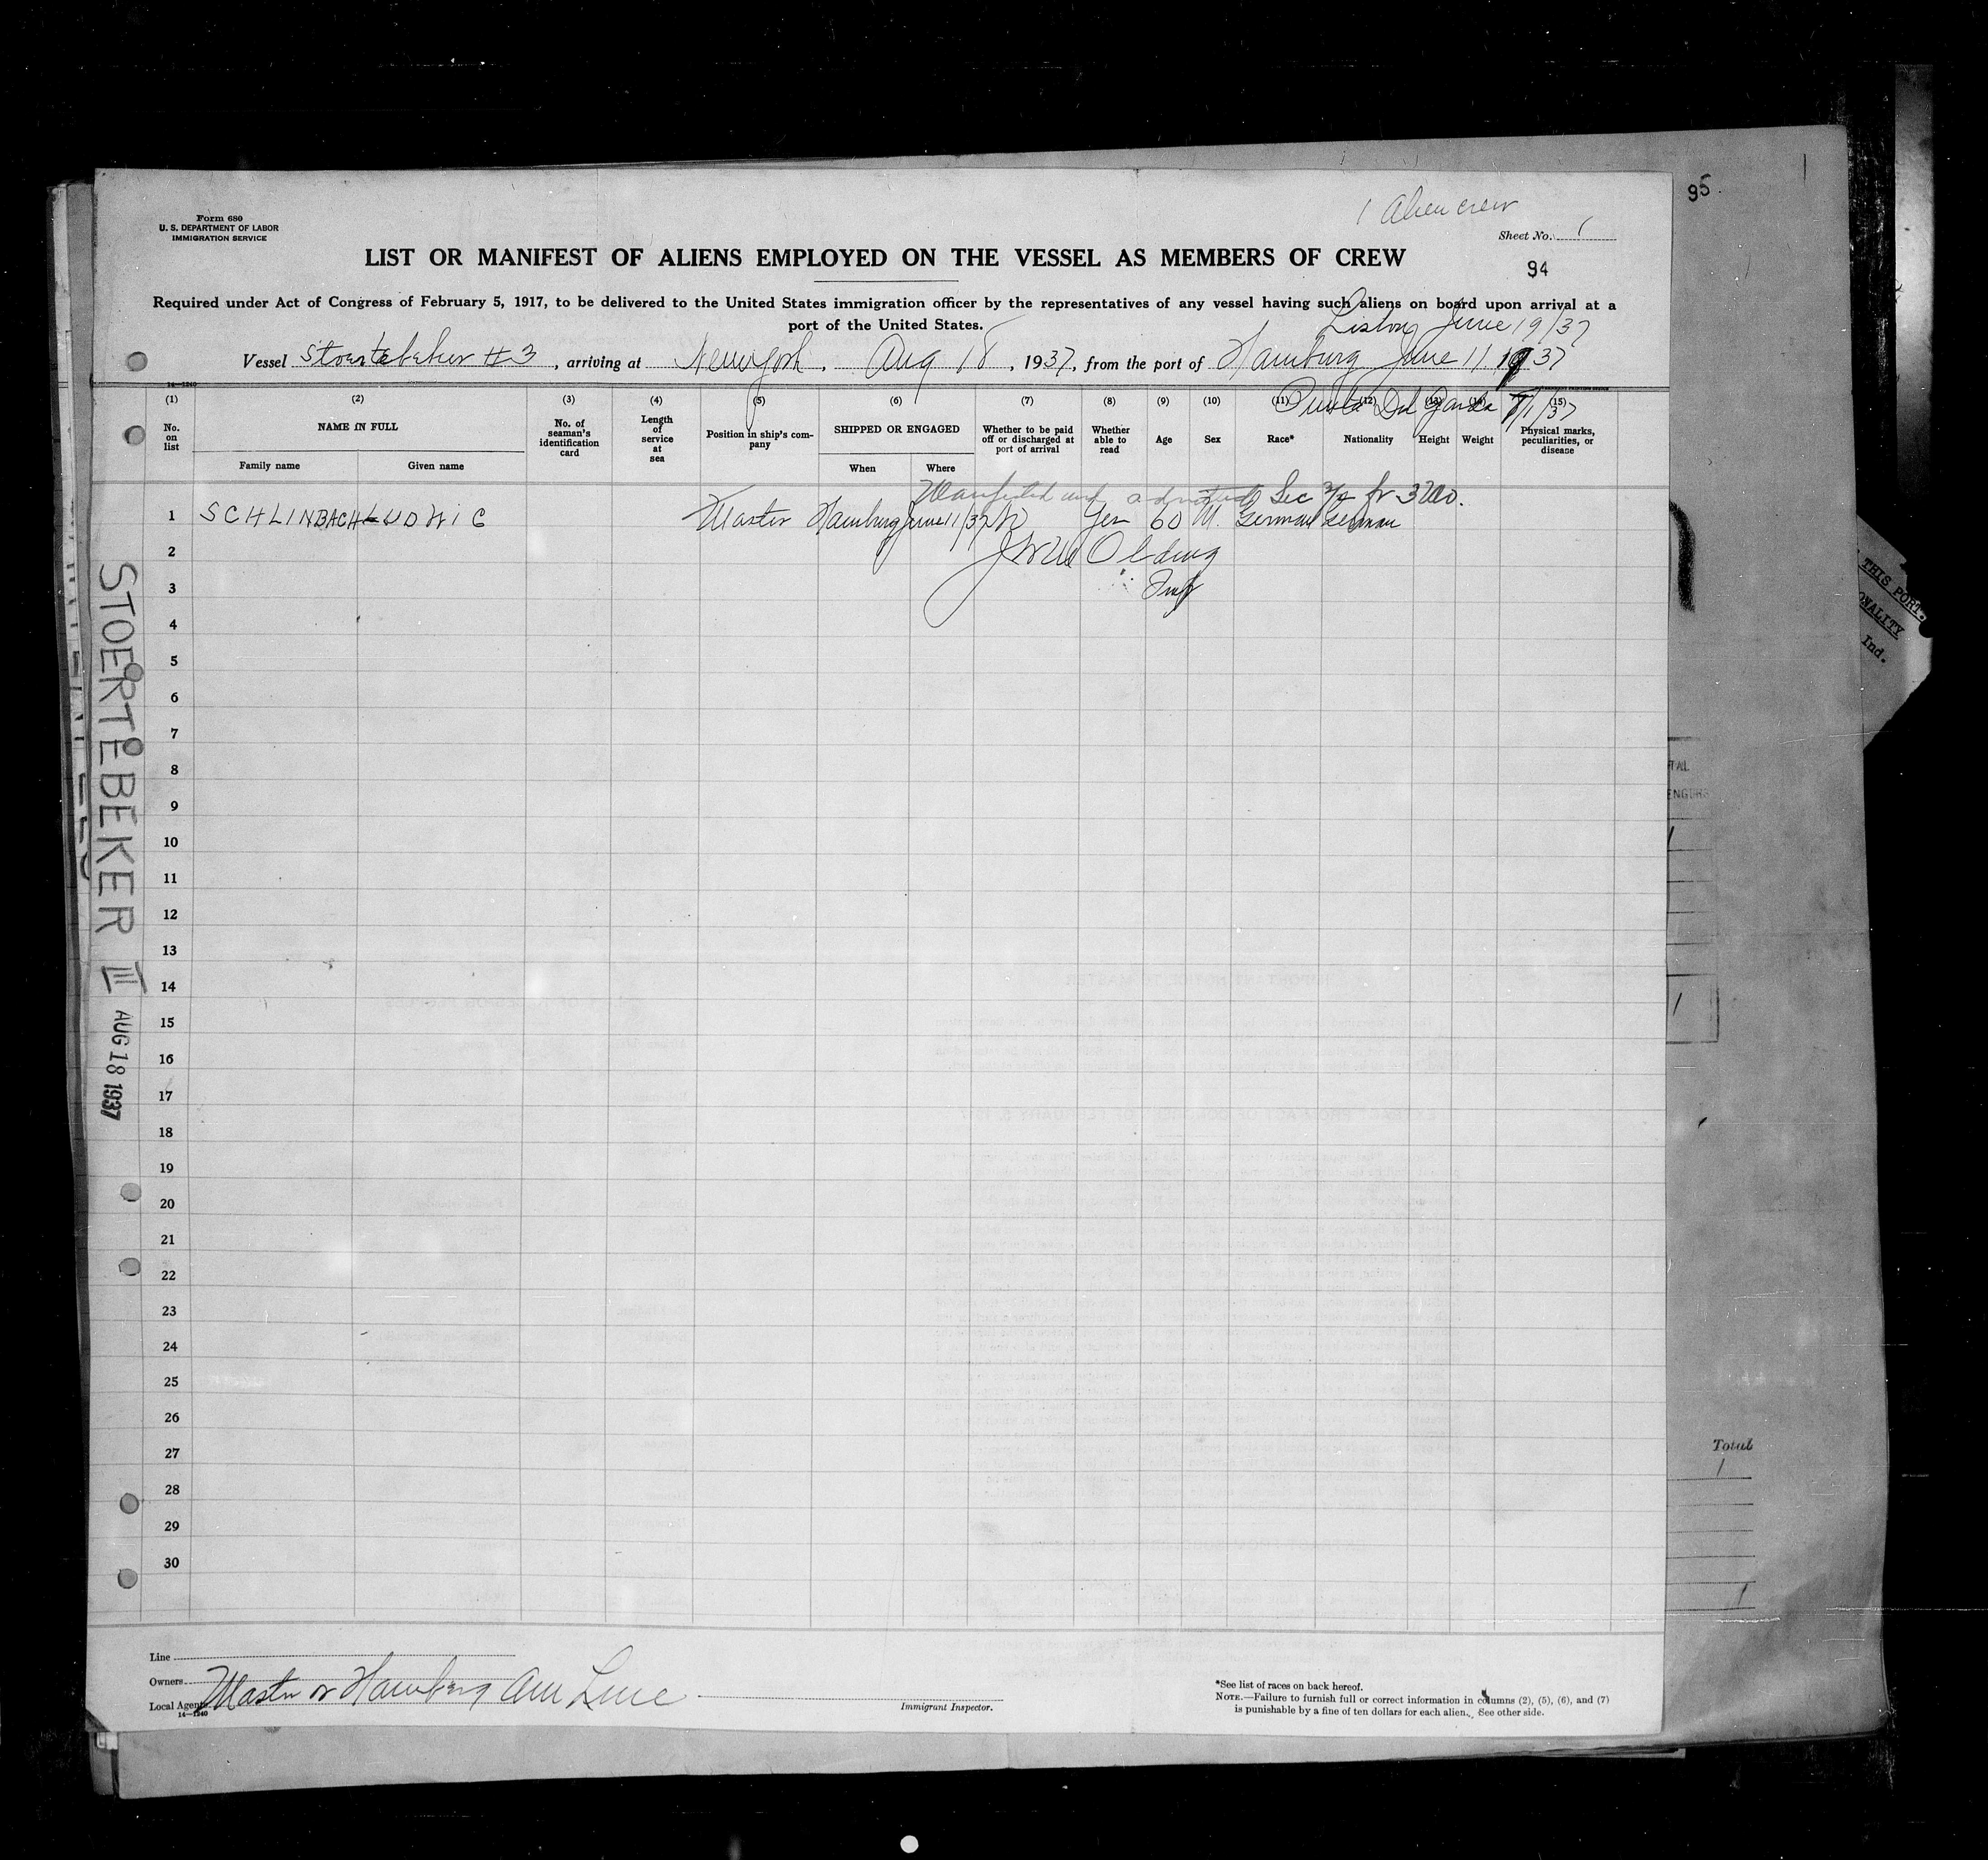 95.
Form 680
U. S. DEPARTMENT OF LABOR
IMMIGRATION SERVICE
1 Alien crew
Sheet No. 1
LIST OR MANIFEST OF ALIENS EMPLOYED ON THE VESSEL AS MEMBERS OF CREW
94
Required under Act of Congress of February 5, 1917, to be delivered to the United States immigration officer by the representatives of any vessel having such aliens on board upon arrival at a
port of the United States.
Lisbon June 19/37
Vessel Stoertebeker #3, arriving at New York, Aug 18, 1937, from the port of Hamburg June 11 1937
14—1240
Punta Del Garda 7/1/37
(1) (2) (3) (4) (5) (6) (7) (8) (9) (10) (11) (12) (13) (14) (15)
No. on list
NAME IN FULL
Family name
Given name
No. of seaman's identification card
Length of service at sea
Position in ship's company
SHIPPED OR ENGAGED
When
Where
Whether to be paid off or discharged at port of arrival
Whether able to read
Age
Sex
Race*
Nationality
Height
Weight
Physical marks, peculiarities, or disease
Manifested and admitted Sec 3/2 fr
1 SCHLINBACH LUDWIG Master Hamburg June 11/37 No Yes 60 M. German German
2
Olding
3
4
5
6
7
8
9
10
11
12
13
14
15
16
17
18
19
20
21
22
23
24
25
26
27
28
29
30
STOERTEBEKER III AUG 18 1937
Line
Owners
Local Agents
Master or Hamburg Am Line
14—1240
Immigrant Inspector.
*See list of races on back hereof.
NOTE.—Failure to furnish full or correct information in columns (2), (5), (6), and (7)
is punishable by a fine of ten dollars for each alien. See other side.
THIS PORT.
ONALITY
Ind.
TAL
ENGERS
1
1
Total
1
1